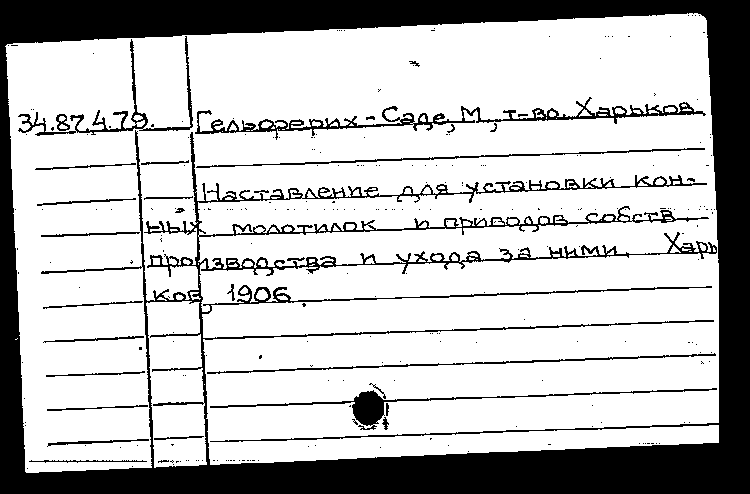 34.87.4.79. Гельферих-Саде, М, т-во. Харьков
Наставление для установки кон-
ных молотилок и приводов собств.
производства и ухода за ними. Харь
ков, 1906.